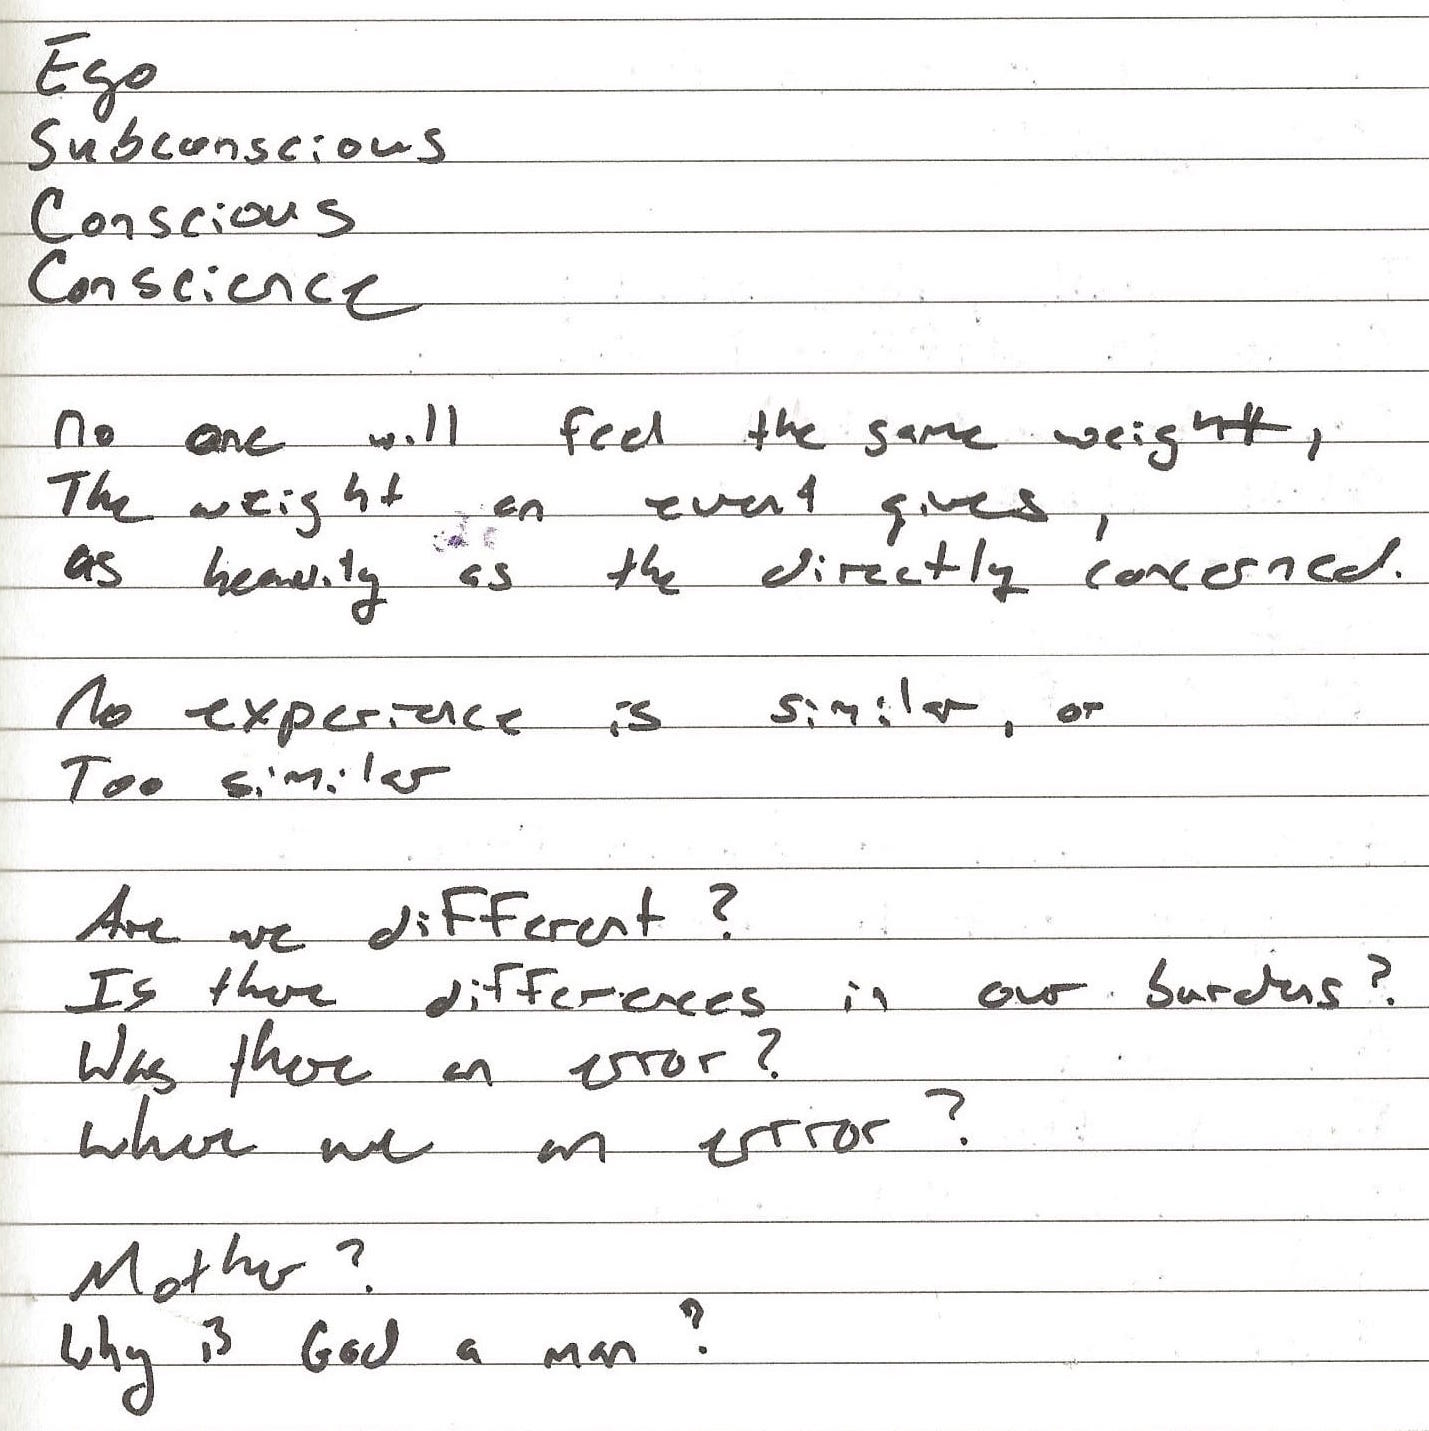 Ego
Subconscious
Conscious
Conscience
No one will feel the same weight,
The weight an event gives,
as heavily as the directly concerned.
No experience is similar, or
Too similar
Are we different?
Is there differences in our burdens?
Was there an error?
Where we an error?
Mother?
Why is God a man?